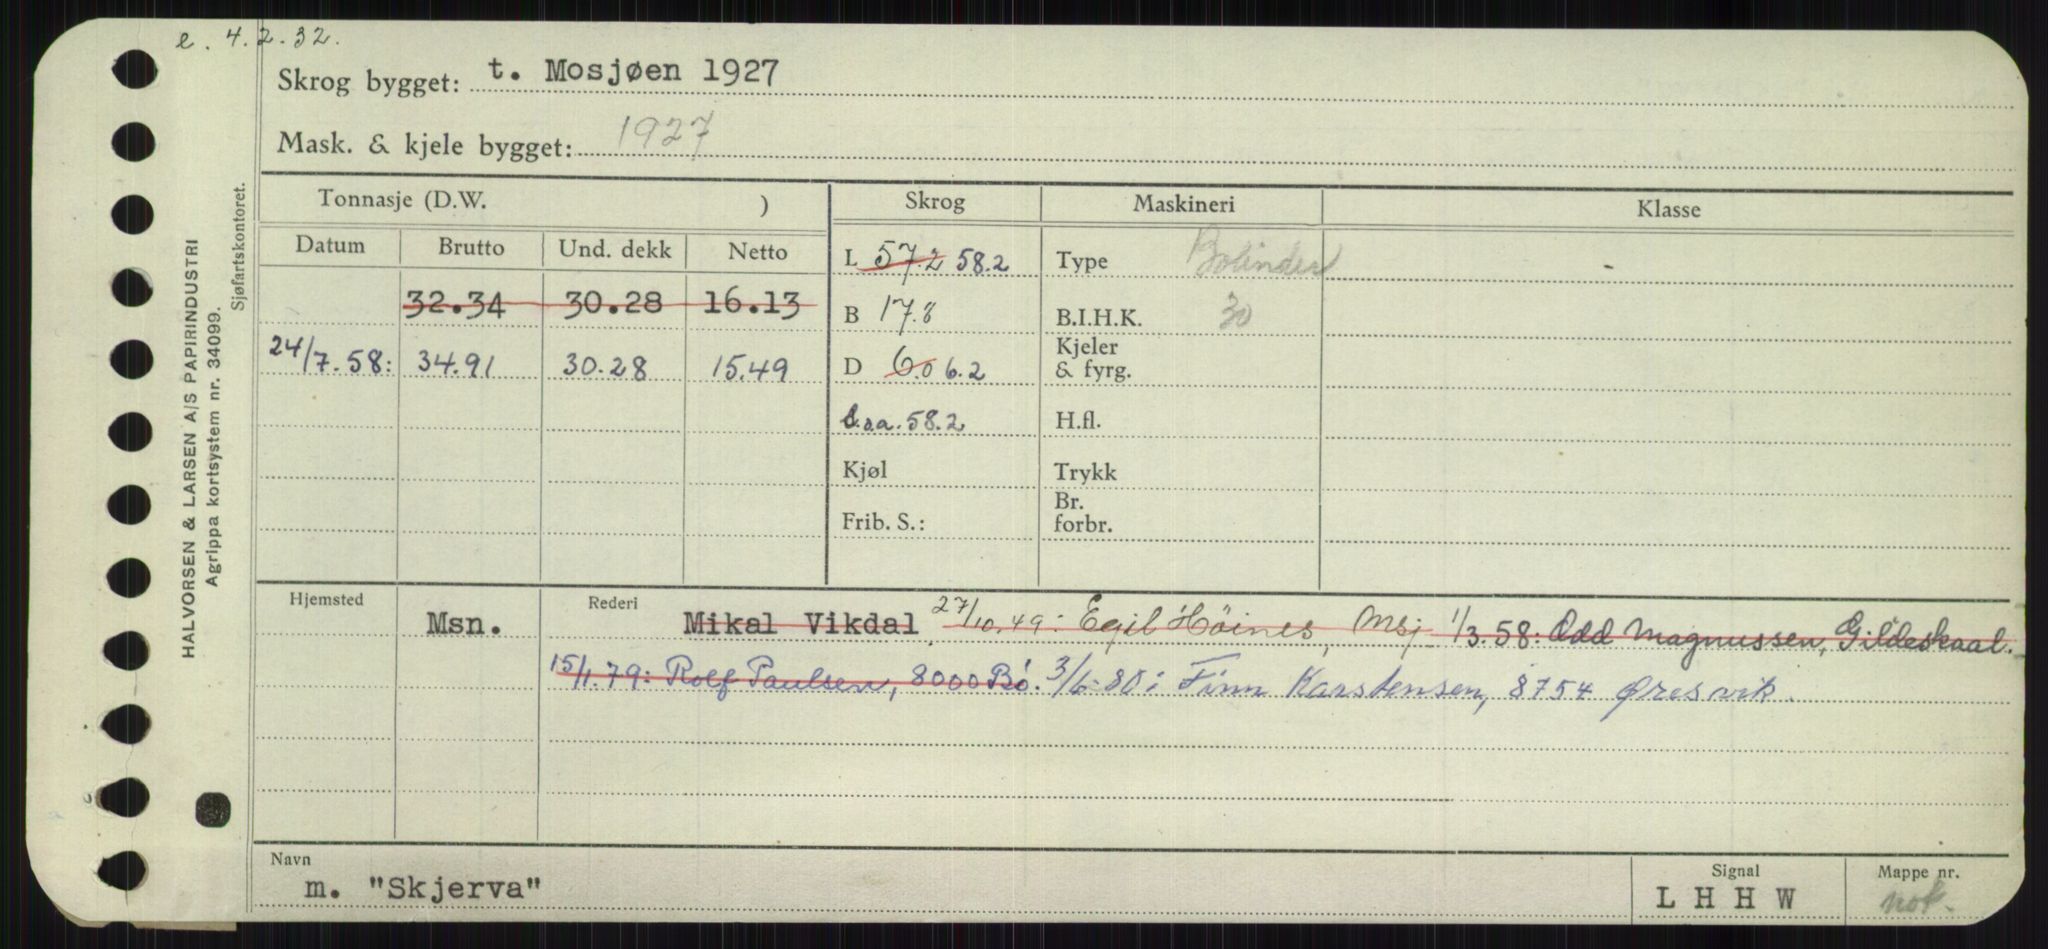 e. 4.2.32.
Skrog bygget: t. Mosjøen 1927
Mask. & kjele bygget: 1927
Tonnasje (D.W. ) Skrog Maskineri Klasse
Datum Brutto Und. dekk Netto
L 57.2 58.2 Type Bolinder
32.34 30.28 16.13
B 17.8 B.I.H.K. 30
24/7.58: 34.91 30.28 15.49
D 6.0 6.2 Kjeler
& fyrg.
L.o.a. 58.2 H.fl.
Kjøl Trykk
Frib. S.: Br.
forbr.
Hjemsted Msn. Rederi Mikal Vikdal, 27/10.49: Egil Høines, Msj 1/3.58: Odd Magnussen, Gildeskaal.
15/1.79: Rolf Paulsen, 8000 Bø. 3/6-80: Finn Karstensen, 8754 Øresvik.
Navn Signal Mappe nr.
m. "Skjerva" L H H W not.
HALVORSEN & LARSEN A/S PAPIRINDUSTRI
Agrippa kortsystem nr. 34099.
Sjøfartskontoret.